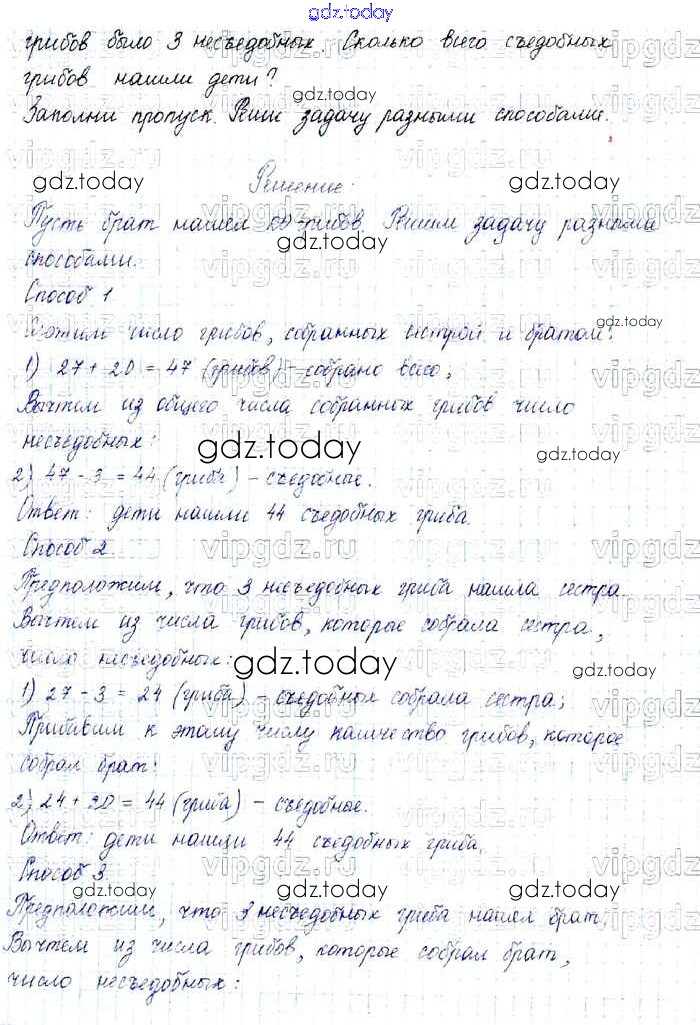 gdz.today
грибов было 3 несъедобных. Сколько всего съедобных
грибов нашли дети?
gdz.today
Заполни пропуск. Реши задачу разными способами.
Решение:
gdz.today
gdz.today
Пусть брат нашел 20 грибов. Решим задачу разными
gdz.today
способами.
Способ 1
Сложим число грибов, собранных сестрой и братом:
1) 27 + 20 = 47 (грибов) - собрано всего;
gdz.today
Вычтем из общего числа собранных грибов число
несъедобных:
gdz.today
gdz.today
2) 47 - 3 = 44 (гриба) - съедобные.
Ответ: дети нашли 44 съедобных гриба.
Способ 2.
Предположим, что 3 несъедобных гриба нашла сестра.
Вычтем из числа грибов, которые собрала сестра,
число несъедобных:
gdz.today
1) 27 - 3 = 24 (гриба) - съедобных собрала сестра;
Прибавим к этому числу количество грибов, которое
собрал брат:
2) 24 + 20 = 44 (гриба) - съедобные.
Ответ: дети нашли 44 съедобных гриба.
Способ 3.
gdz.today
Предположим, что 3 несъедобных гриба нашел брат.
Вычтем из числа грибов, которые собрал брат,
число несъедобных:
gdz.today